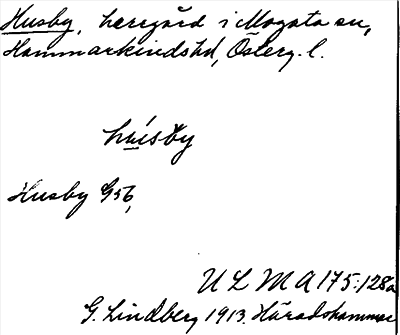 Husby, herrgård i Mogata sn,
Hammarkindshd, Österg. l.
húsby
Husby G56,
ULMA 175:128a
G. Lindberg 1913. Häradshammar